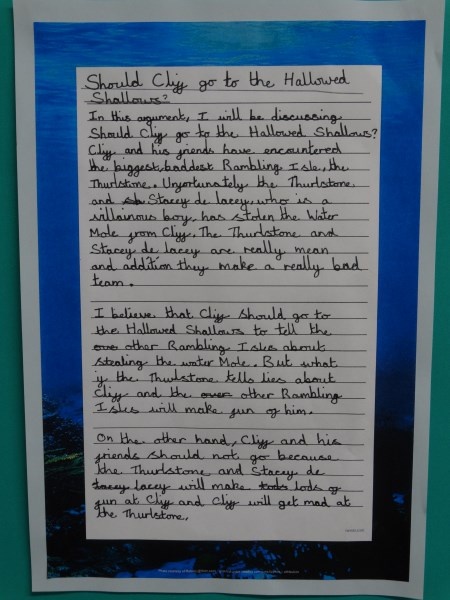 Should Cliff go to the Hallowed
Shallows?
In this argument, I will be discussing
Should Cliff go to the Hallowed Shallows?
Cliff and his friends have encountered
the biggest, baddest Rambling Isle, the
Thurlstone. Unfortunately the Thurlstone
and Stacey de lacey, who is a
villainous boy, has stolen the Water
Mole from Cliff. The Thurlstone and
Stacey de lacey are really mean
and addition they make a really bad
team.
I believe that Cliff should go to
the Hallowed Shallows to tell the
other Rambling Isles about
stealing the water Mole. But what
if the Thurlstone tells lies about
Cliff and the other Rambling
Isles will make fun of him.
On the other hand, Cliff and his
friends should not go because
the Thurlstone and Stacey de
lacey will make lods of
fun at Cliff and Cliff will get mad at
the Thurlstone.